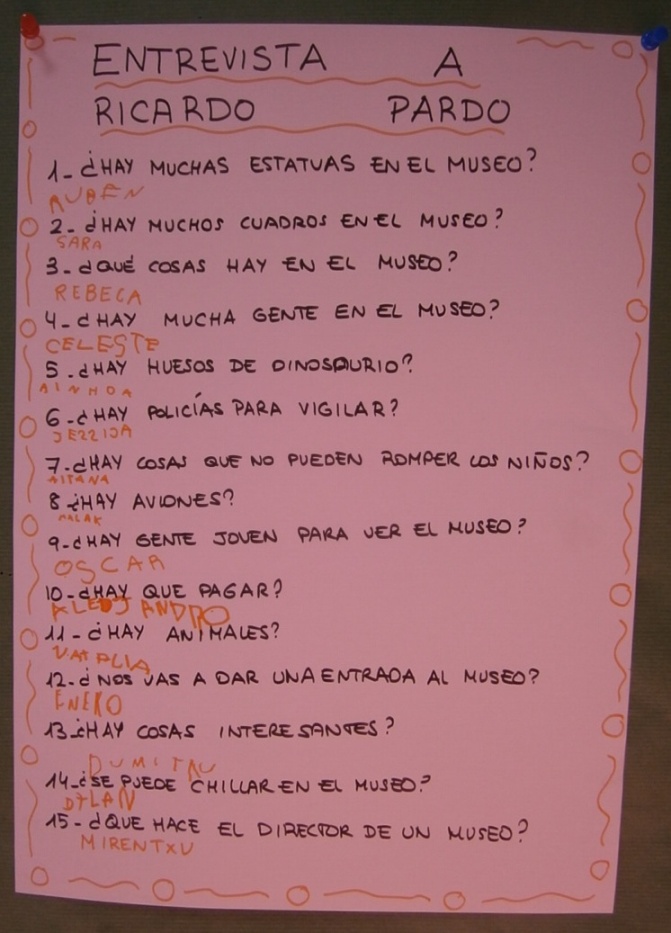 ENTREVISTA A
RICARDO PARDO
1- ¿HAY MUCHAS ESTATUAS EN EL MUSEO?
RUBEN
2- ¿HAY MUCHOS CUADROS EN EL MUSEO?
SARA
3- ¿QUÉ COSAS HAY EN EL MUSEO?
REBECA
4- ¿HAY MUCHA GENTE EN EL MUSEO?
CELESTE
5- ¿HAY HUESOS DE DINOSAURIO?
AINHOA
6- ¿HAY POLICÍAS PARA VIGILAR?
7- ¿HAY COSAS QUE NO PUEDEN ROMPER LOS NIÑOS?
AITANA
8 ¿HAY AVIONES?
MALAK
9- ¿HAY GENTE JOVEN PARA VER EL MUSEO?
OSCAR
10- ¿HAY QUE PAGAR?
ALEJANDRO
11- ¿HAY ANIMALES?
12- ¿NOS VAS A DAR UNA ENTRADA AL MUSEO?
ENEKO
13- ¿HAY COSAS INTERESANTES?
DUMITRU
14- ¿SE PUEDE CHILLAR EN EL MUSEO?
DYLAN
15- ¿QUE HACE EL DIRECTOR DE UN MUSEO?
MIRENTXU